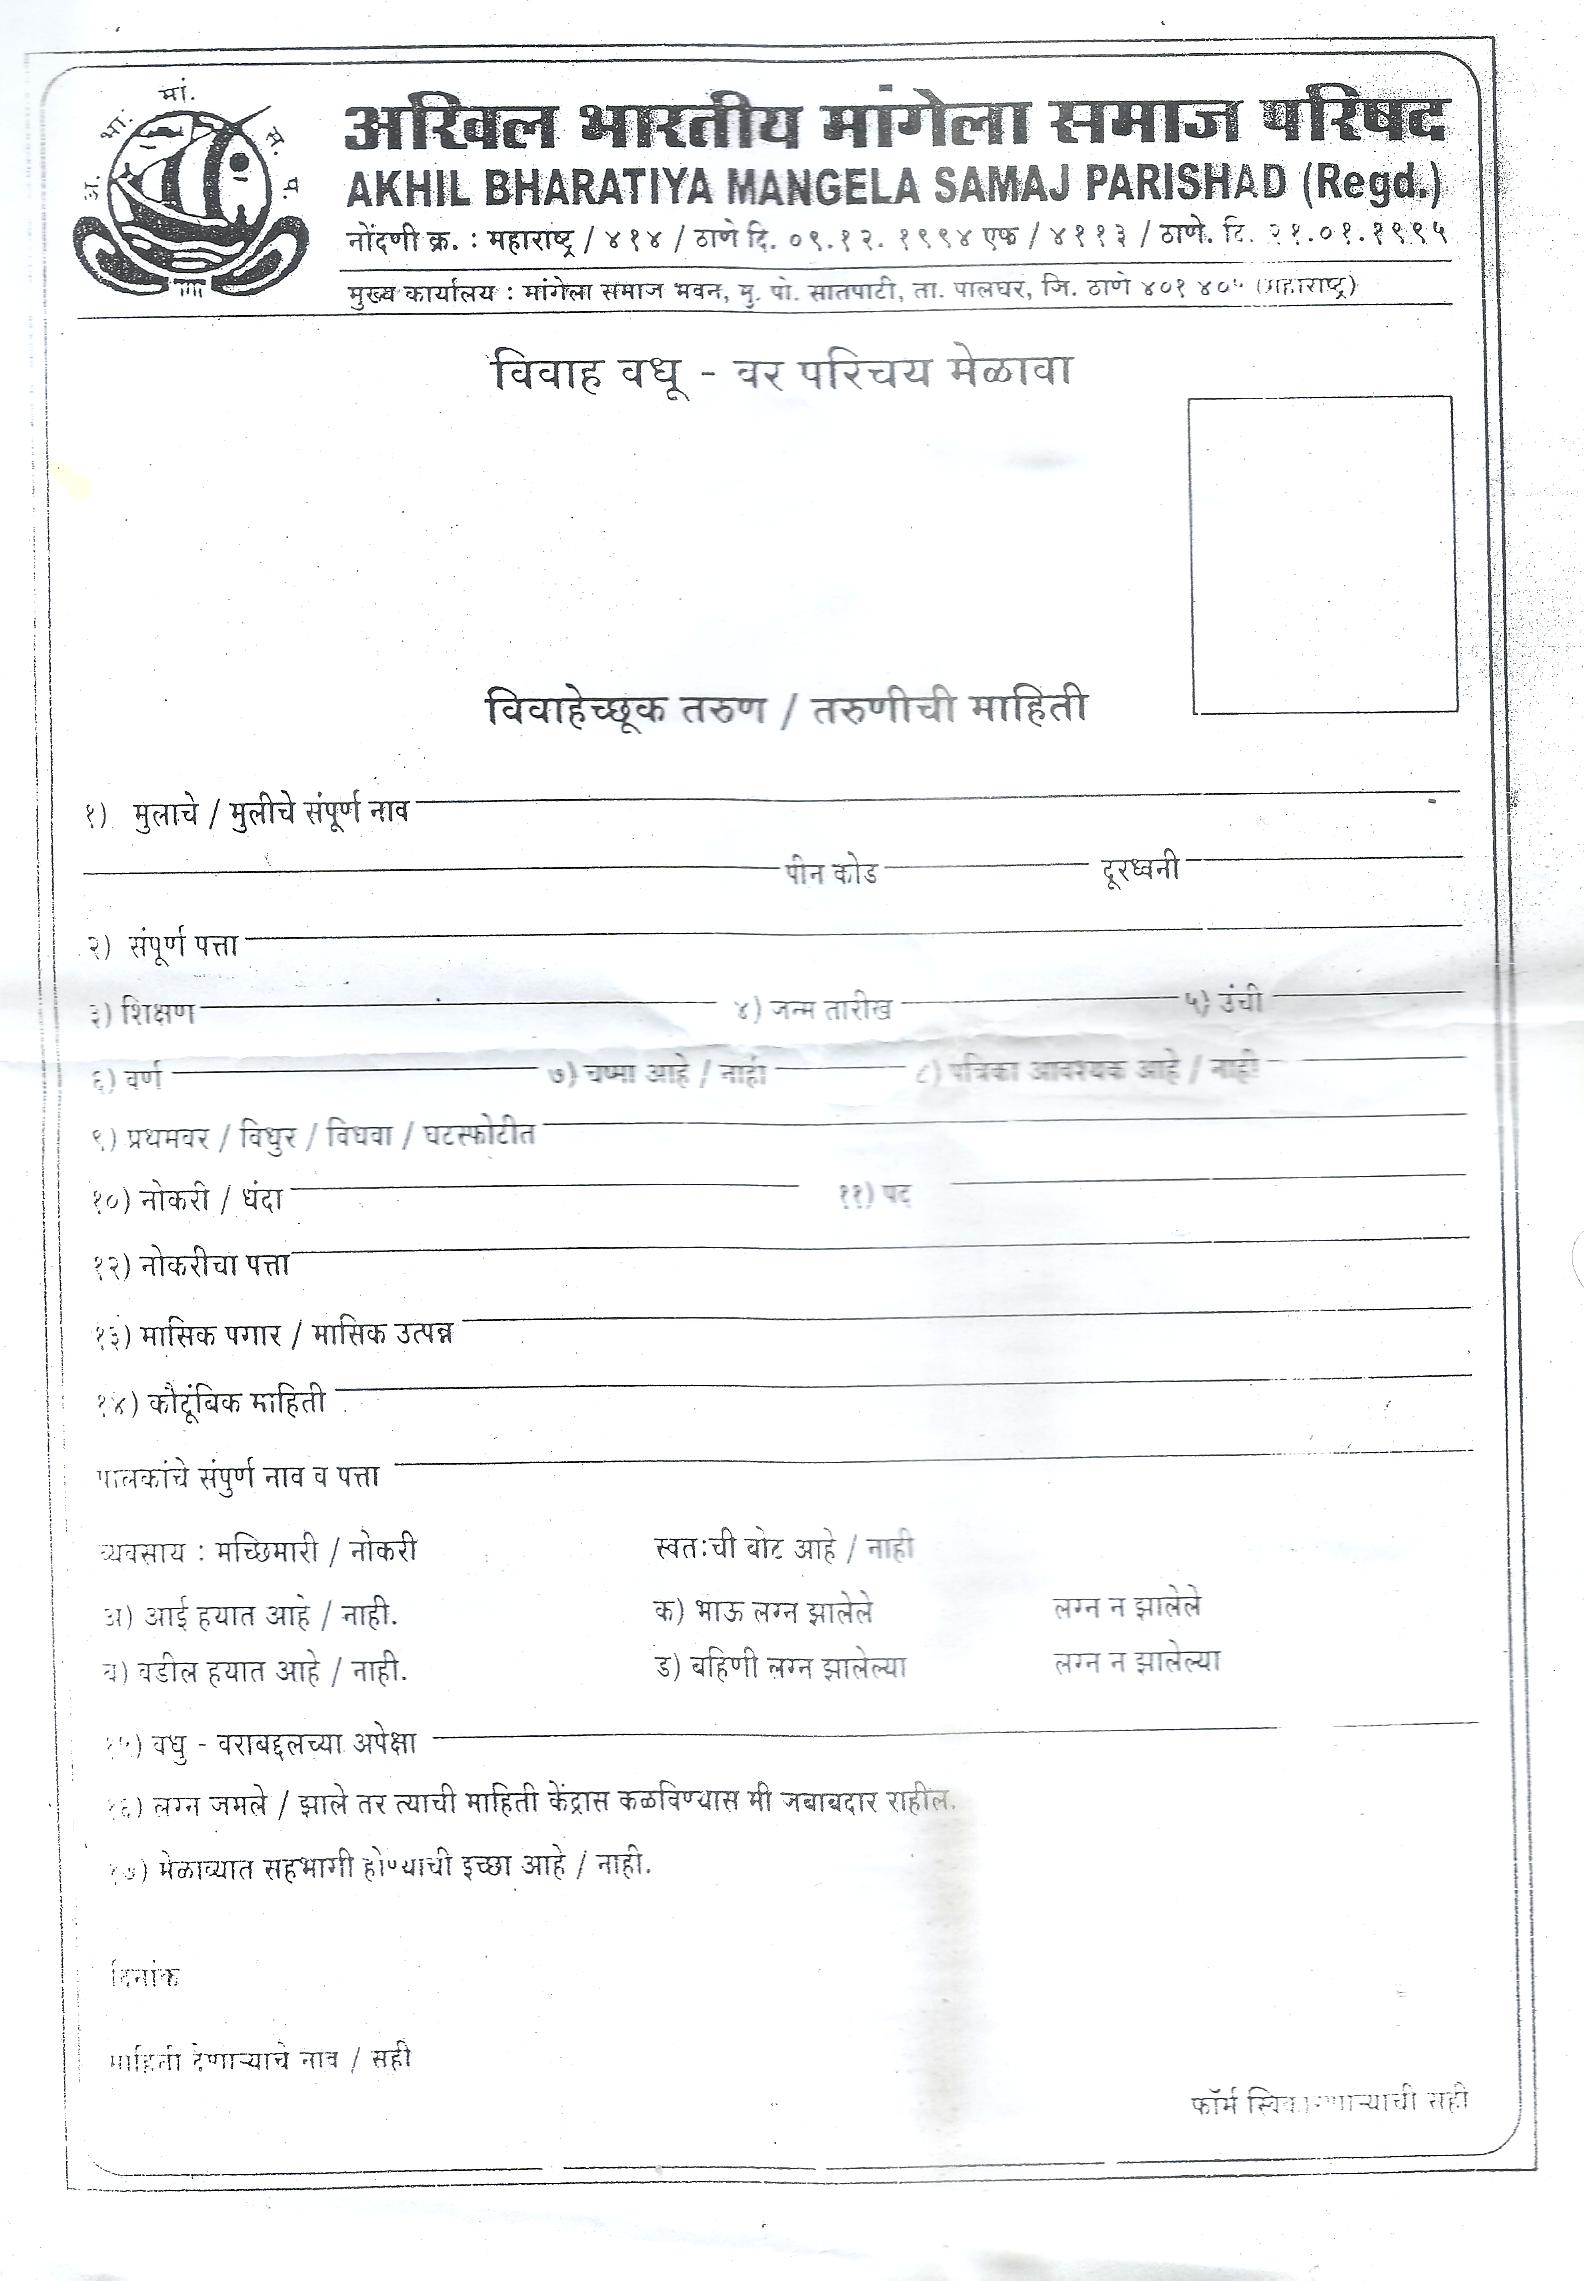 अ. भा. मां. स. प.
अखिल भारतीय मांगेला समाज परिषद
AKHIL BHARATIYA MANGELA SAMAJ PARISHAD (Regd.)
नोंदणी क्र. : महाराष्ट्र / ४१४ / ठाणे दि. ०९.१२. १९९४ एफ / ४११३ / ठाणे. दि. २१.०१.१९९५
मुख्य कार्यालय : मांगेला समाज भवन, मु. पो. सातपाटी, ता. पालघर, जि. ठाणे ४०१ ४०५ (महाराष्ट्र)
विवाह वधू - वर परिचय मेळावा
विवाहेच्छूक तरुण / तरुणीची माहिती
१) मुलाचे / मुलीचे संपूर्ण नाव
पीन कोड दूरध्वनी
२) संपूर्ण पत्ता
३) शिक्षण ४) जन्म तारीख ५) उंची
६) वर्ण ७) चष्मा आहे / नाही ८) पत्रिका आवश्यक आहे / नाही
९) प्रथमवर / विधुर / विधवा / घटस्फोटीत
१०) नोकरी / धंदा ११) पद
१२) नोकरीचा पत्ता
१३) मासिक पगार / मासिक उत्पन्न
१४) कौटूंबिक माहिती
पालकांचे संपुर्ण नाव व पत्ता
व्यवसाय : मच्छिमारी / नोकरी स्वतःची बोट आहे / नाही
अ) आई हयात आहे / नाही. क) भाऊ लग्न झालेले लग्न न झालेले
ब) वडील हयात आहे / नाही. ड) बहिणी लग्न झालेल्या लग्न न झालेल्या
१५) वधु - वराबद्दलच्या अपेक्षा
१६) लग्न जमले / झाले तर त्याची माहिती केंद्रास कळविण्यास मी जबाबदार राहील.
१७) मेळाव्यात सहभागी होण्याची इच्छा आहे / नाही.
दिनांक
माहिती देणाऱ्याचे नाव / सही
फॉर्म स्विकारणाऱ्याची सही